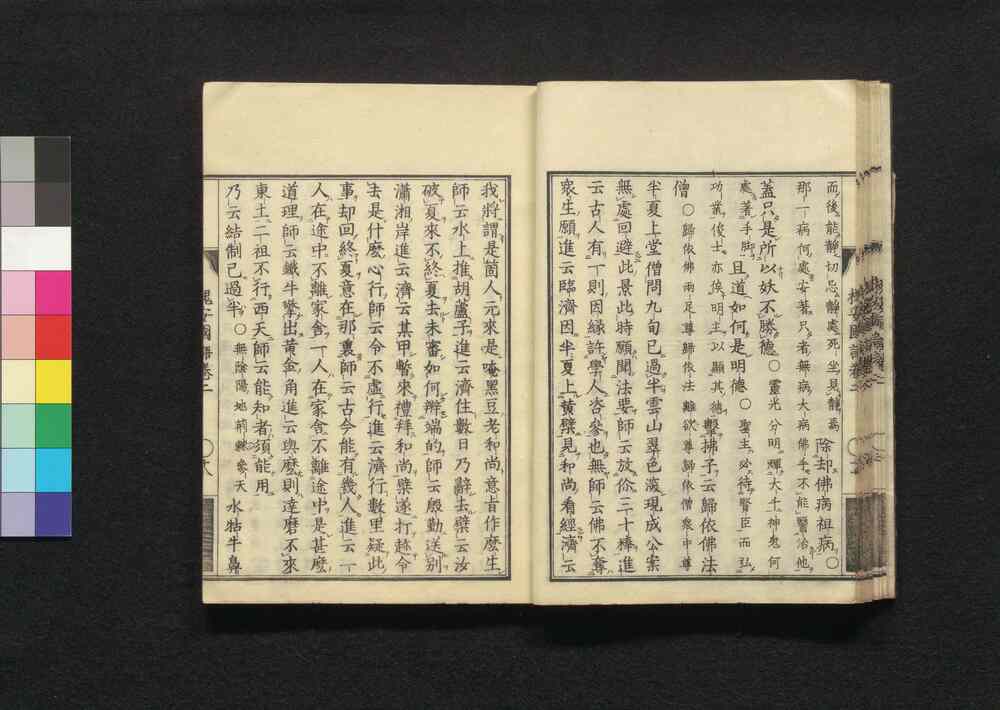 而後能靜切忌靜處死坐見靜爲 除却佛病祖病○
那一病何處安著只者無病大病佛手不能醫治他
蓋只是所以妖不勝德○靈光分明輝大千神鬼何
處著手脚 且道如何是明德○聖主必待賢臣而弘
功業俊士亦俟明主以顯其德 擊拂子云歸依佛法
僧○歸依佛兩足尊歸依法離欲尊歸依僧衆中尊
半夏上堂僧問九旬已過半雲山翠色濃現成公案
無處回避此景此時願聞法要師云放儞三十棒進
云古人有一則因緣許學人咨參也無師云佛不奪
衆生願進云臨濟因半夏上黃檗見和尚看經濟云
我將謂是箇人元來是唵黑豆老和尚意旨作麼生
師云水上推胡蘆子進云濟住數日乃辭去檗云汝
破夏來不終夏去未審如何辨端的師云殷勤送別
瀟湘岸進云濟云某甲暫來禮拜和尚檗遂打趂令
去是什麼心行師云令不虛行進云濟行數里疑此
事却回終夏意在那裏師云古今能有幾人進云一
人在途中不離家舍一人在家舍不離途中是甚麼
道理師云鐵牛擊出黃金角進云與麼則達磨不來
東土二祖不行西天師云能知者須能用
乃云結制已過半○無陰陽地荊棘參天 水牯牛鼻
槐安國語卷二 ○八